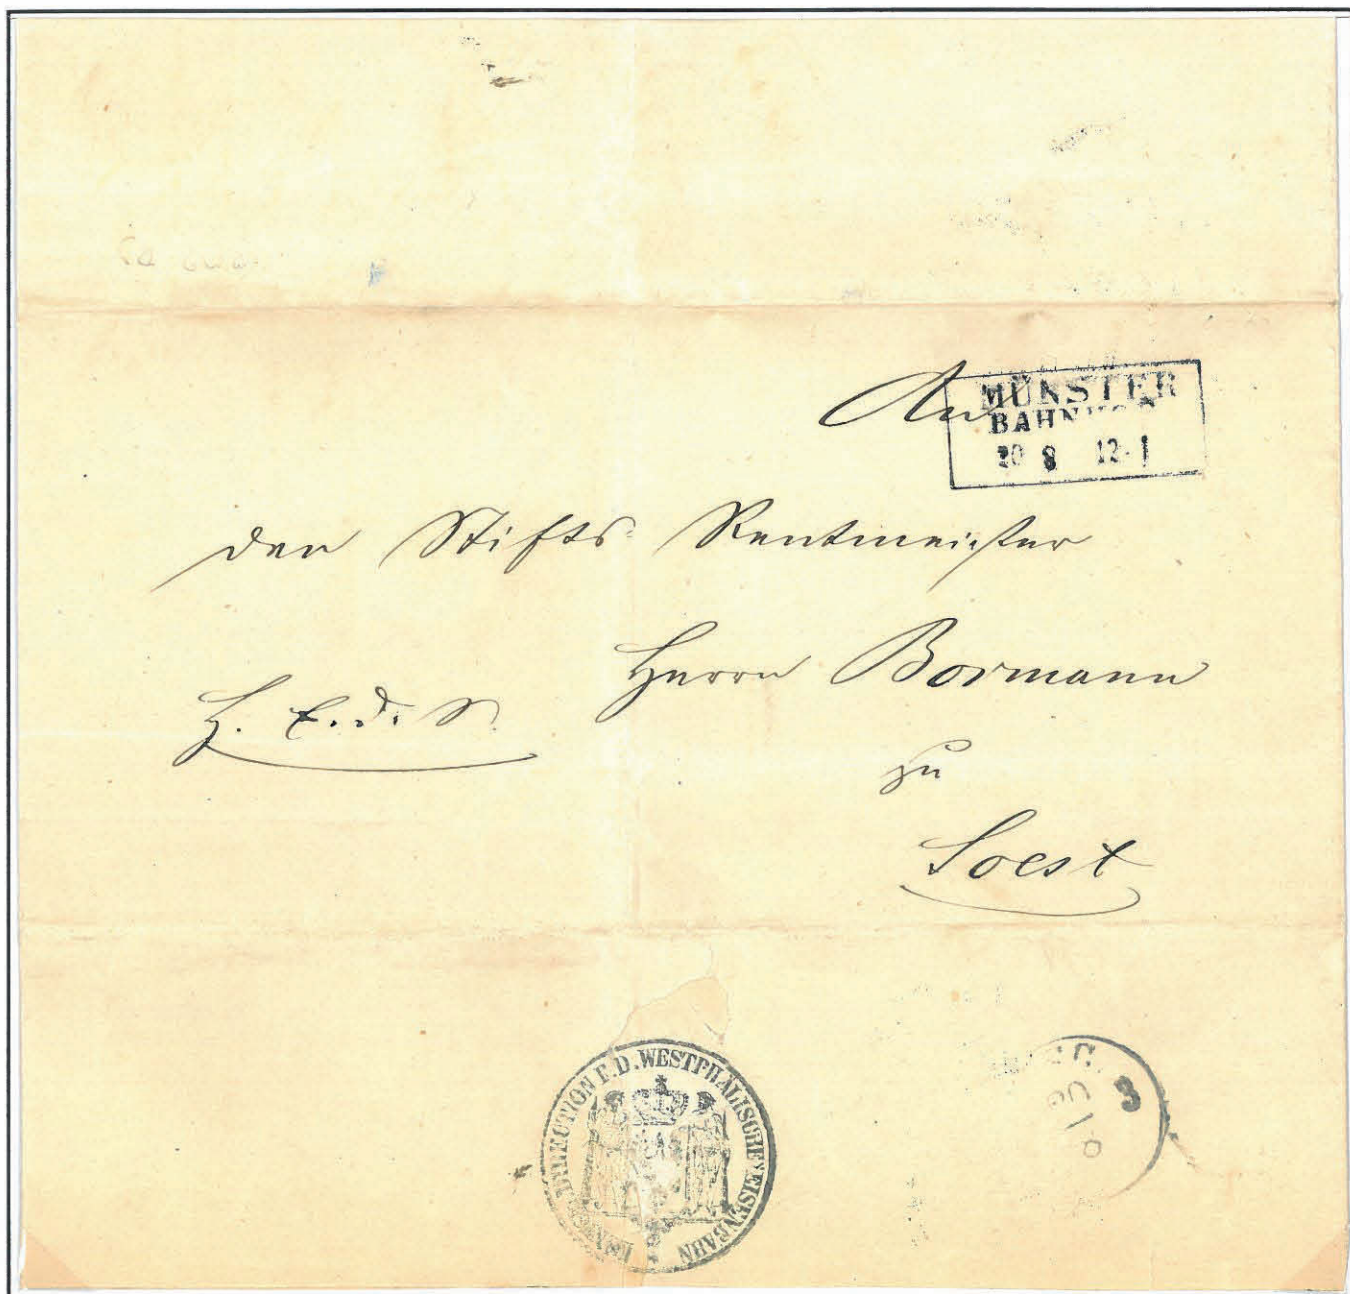 An
MÜNSTER
BAHNHOF
20 8 12-1
den Stifts-Rentmeister
Herrn Bormann
H. E. d. S.
zu
Soest
DIRECTION F. D. WESTPHÄLISCHE EISENBAHN